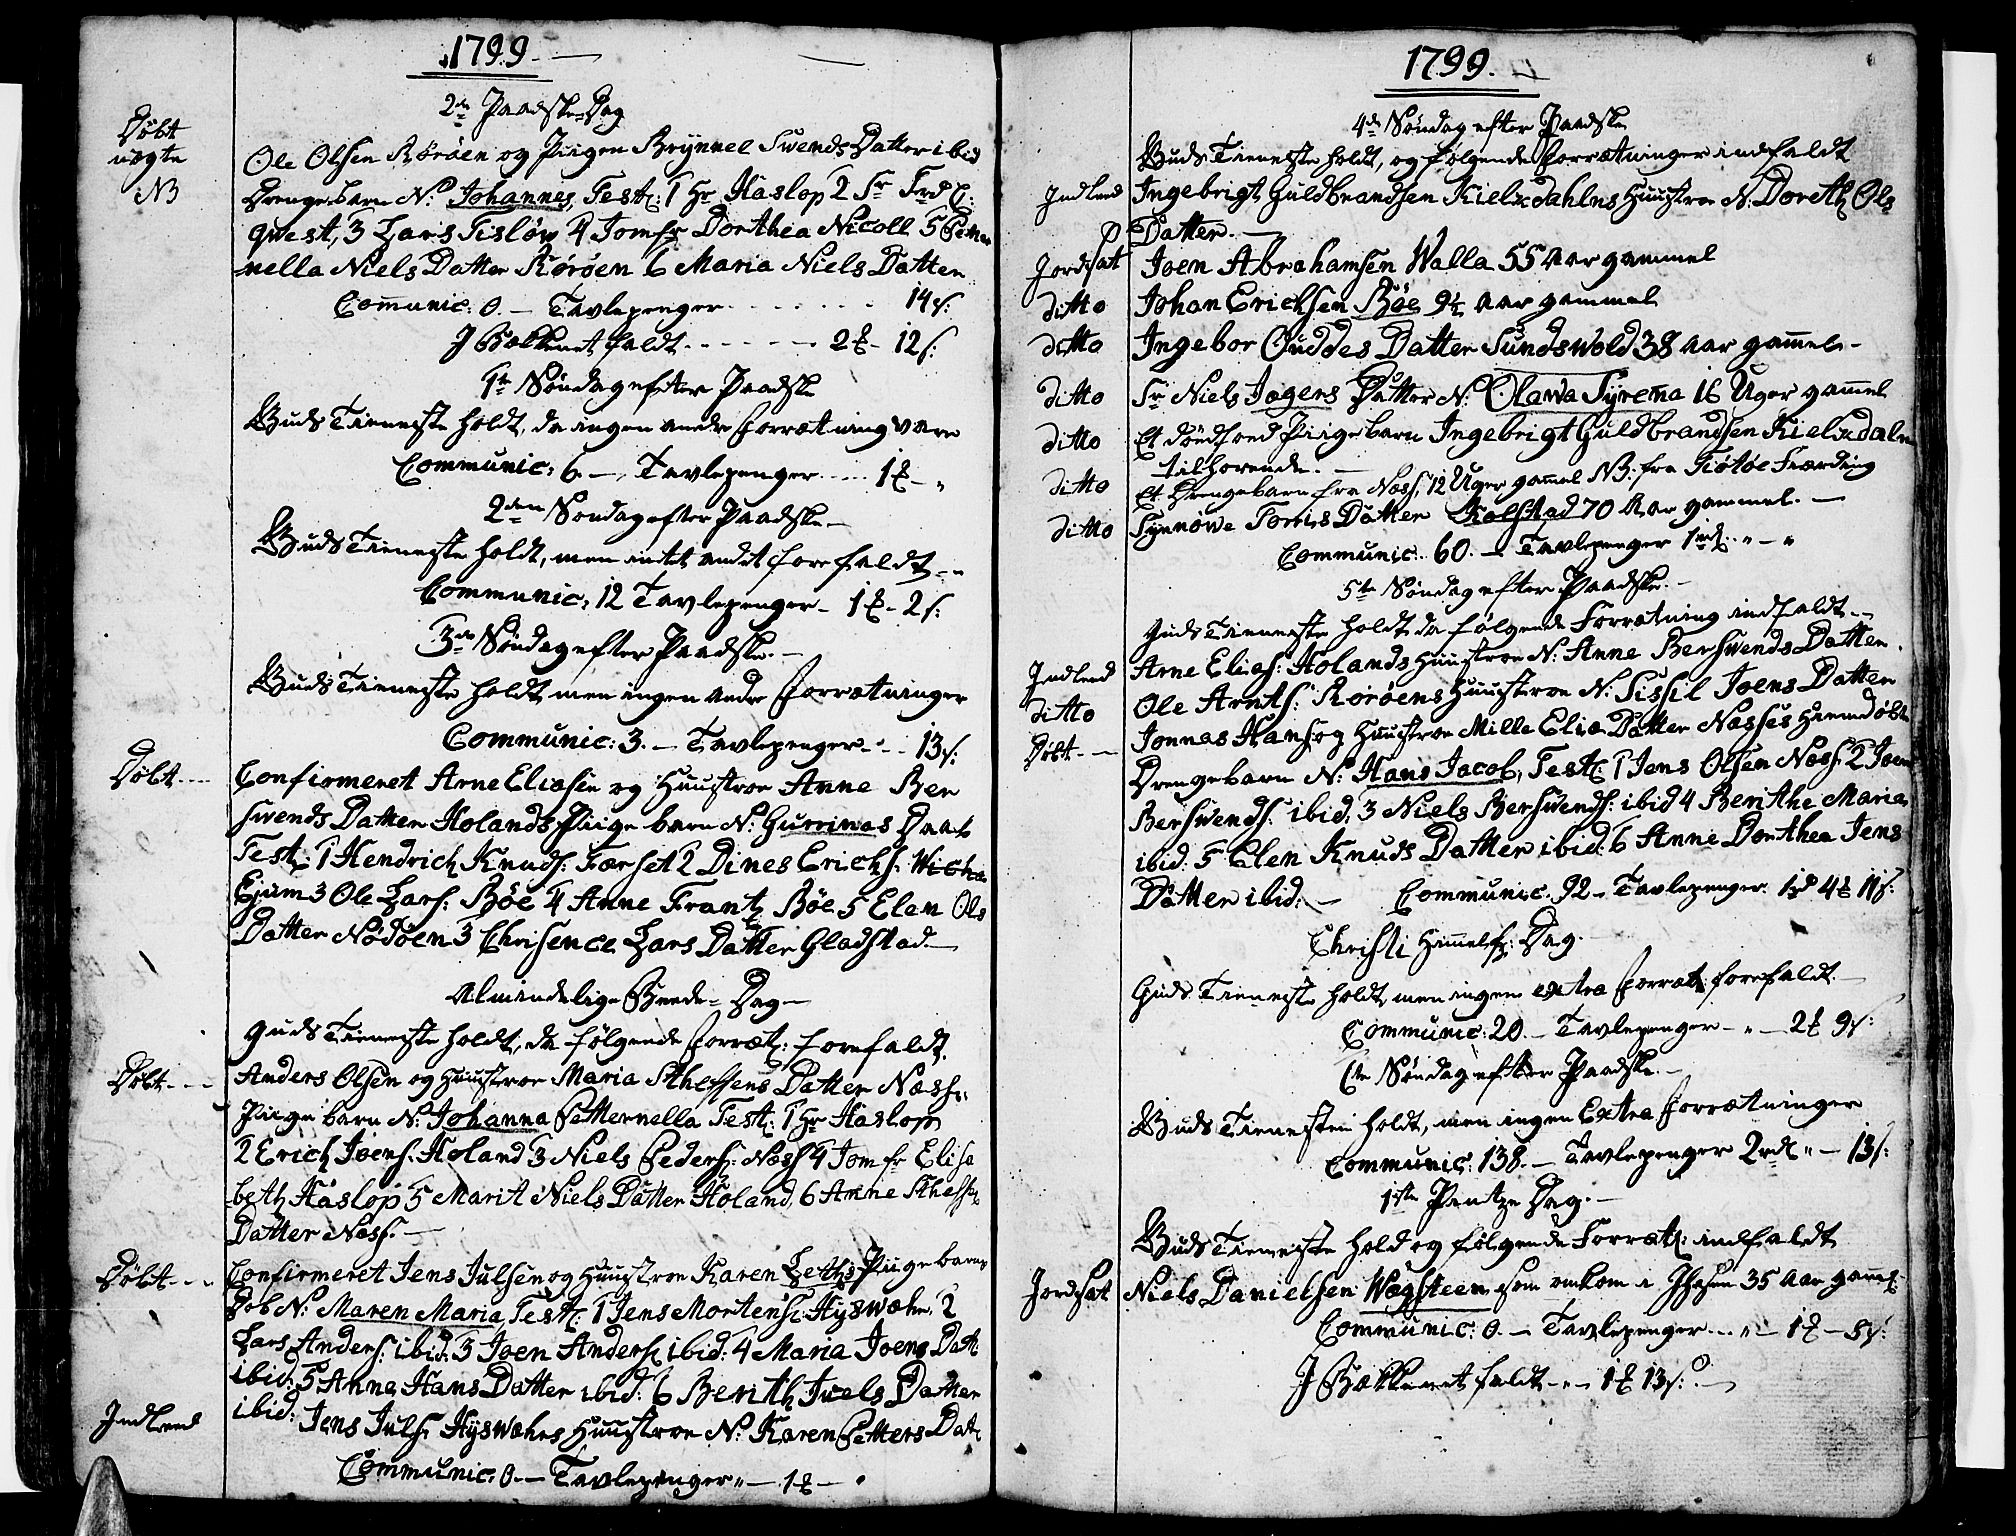 1799.
2den Paadske-Dag
Døbt
uægte
NB
Ole Olsen Rørøen og Piigen Brynnel Swends Datter ibid
Drengebarn N: Johannes, Test: 1 Hr Haslop 2 Sr Frd C:
quest, 3 Lars Tisløw 4 Jomfr Dorthea Nicoll 5 Petter
nella Niels Datter Rørøen 6 Maria Niels Datter
Comunic: 0. — Tavlepenger 14 s:
I Bækkenet faldt 2 - 12 s:
1te Søndag efter Paadske
Guds Tienneste holdt, da ingen andre Forrætning vare
Communic: 6. — Tavlepenger 1 - "
2den Søndag efter Paadske —
Guds Tienneste holdt, men intet andet forefaldt —
Communic: 12 Tavlepenger — 1 - 2 s:
3de Søndag efter Paadske. —
Guds Tienneste holdt men ingen andre Forrætninger
Communic: 3. — Tavlepenger 13 s:
Døbt
Confirmeret Arne Eliæsen og Huustroe Anne Ber
swends Datter Holands Piige barn N: Gurrinas Daab
Test: 1 Hendrich Knuds: Færset 2 Dines Erichs:
3 Ole Lars: Bøe 4 Anne Frantz Bøe 5 Elen Ols
Datter Nødøen 3 Chrisence Lars Datter Gladstad —
Almindelige Beede-Dag —
Guds Tienneste holdt, da følgende Forræt: forefaldt.
Døbt
Anders Olsen og Huustroe Maria Sthessens Datter Næss:
Piige barn N: Johanna Petternella Test: 1 Hr Haslop
2 Erich Joens: Holand 3 Niels Peders: Næss 4 Jomfr Elisa
beth Haslop 5 Marit Niels Datter Holand, 6 Anne Sthess:
Datter Næss. —
Døbt
Confirmeret Jens Julsen og Huustroe Karen Piige barns
Dob N: Maren Maria, Test: 1 Jens Mortens: Hyswæhr 2
Lars Anders: ibid: 3 Joen Anders: ibid: 4 Maria Joens Datt:
ibid: 5 Anne Hans Datter ibid: 6 Berith Juels Datter
ibid:
Indleed
Jens Juls: Hyswæhrs Huustroe N: Karen Petters Datt:
Communic: 0. — Tavlepenger " — 1 —
1799.
4de Søndag efter Paadske
Guds Tienneste holdt, og følgende Forrætninger indfaldt
Indleed
Ingebrigt Guldbrandsen Kielsdahlns Huustroe N: Doreth Ols
Datter. —
Jordsat
Joen Abrahamsen Walla 55 Aar gammel
ditto
Johan Erichsen Bøe 9½ Aar gammel
ditto
Ingebor Ouddes Datter Sundswold 38 Aar gammel —
ditto
Sr Niels Jægers Datter N: Olawa Syrena 16 Uger gammel
ditto
Et dødfød Piigebarn Ingebrigt Guldbrandsen Kielsdaln
tilhørende. —
ditto
Et Drengebarn fra Næss, 12 Uger gammel NB: fra Tiøtøe Fierding
ditto
Synnøwe Torris Datter Kolstad 70 Aar gammel. —
Communic: 60. — Tavlepenger 1 rd " — "
5te Søndag efter Paadske. —
Guds Tienneste holdt da følgende Forrætning indfaldt —
Indleed
Arne Elies: Holands Huustroe N: Anne Berswends Datter.
ditto
Ole Arnts: Rorøens Huustroe N: Sissil Joens Datter
Døbt
Jonnas Hans: og Huustroe Mille Elia Datter Næsses Hiemdøbte
Drengebarn N: Hans Jacob, Test: 1 Jens Olsen Næss 2 Joen
Berswends: ibid, 3 Niels Berswends: ibid 4 Berithe Maria
ibid: 5 Elen Knuds Datter ibid: 6 Anne Dorthea Jens
Datter ibid: — Communic: 92 — Tavlepenger. 1 rd 4 11 s:
Christi Himmelf: Dag.
Guds Tienneste holdt, men ingen extra Forræt: forefaldt —
Communic: 20. — Tavlepenger — " — 2 9 s:
6te Søndag efter Paadske. —
Guds Tienesten holdt, men ingen Extra Forrætninger
Communic: 138. — Tavlepenger 2 rd " — 13 s:
1ste Pintze Dag. —
Guds Tienneste hold og følgende Forræt: indfaldt
Jordsat
Niels Danielsen Wægsteen som omkom i Isen 35 Aar gammel
Communic: 0. — Tavlepenger " — 1 — 5 s:
I Bækkenet faldt " — 1 13 s: —